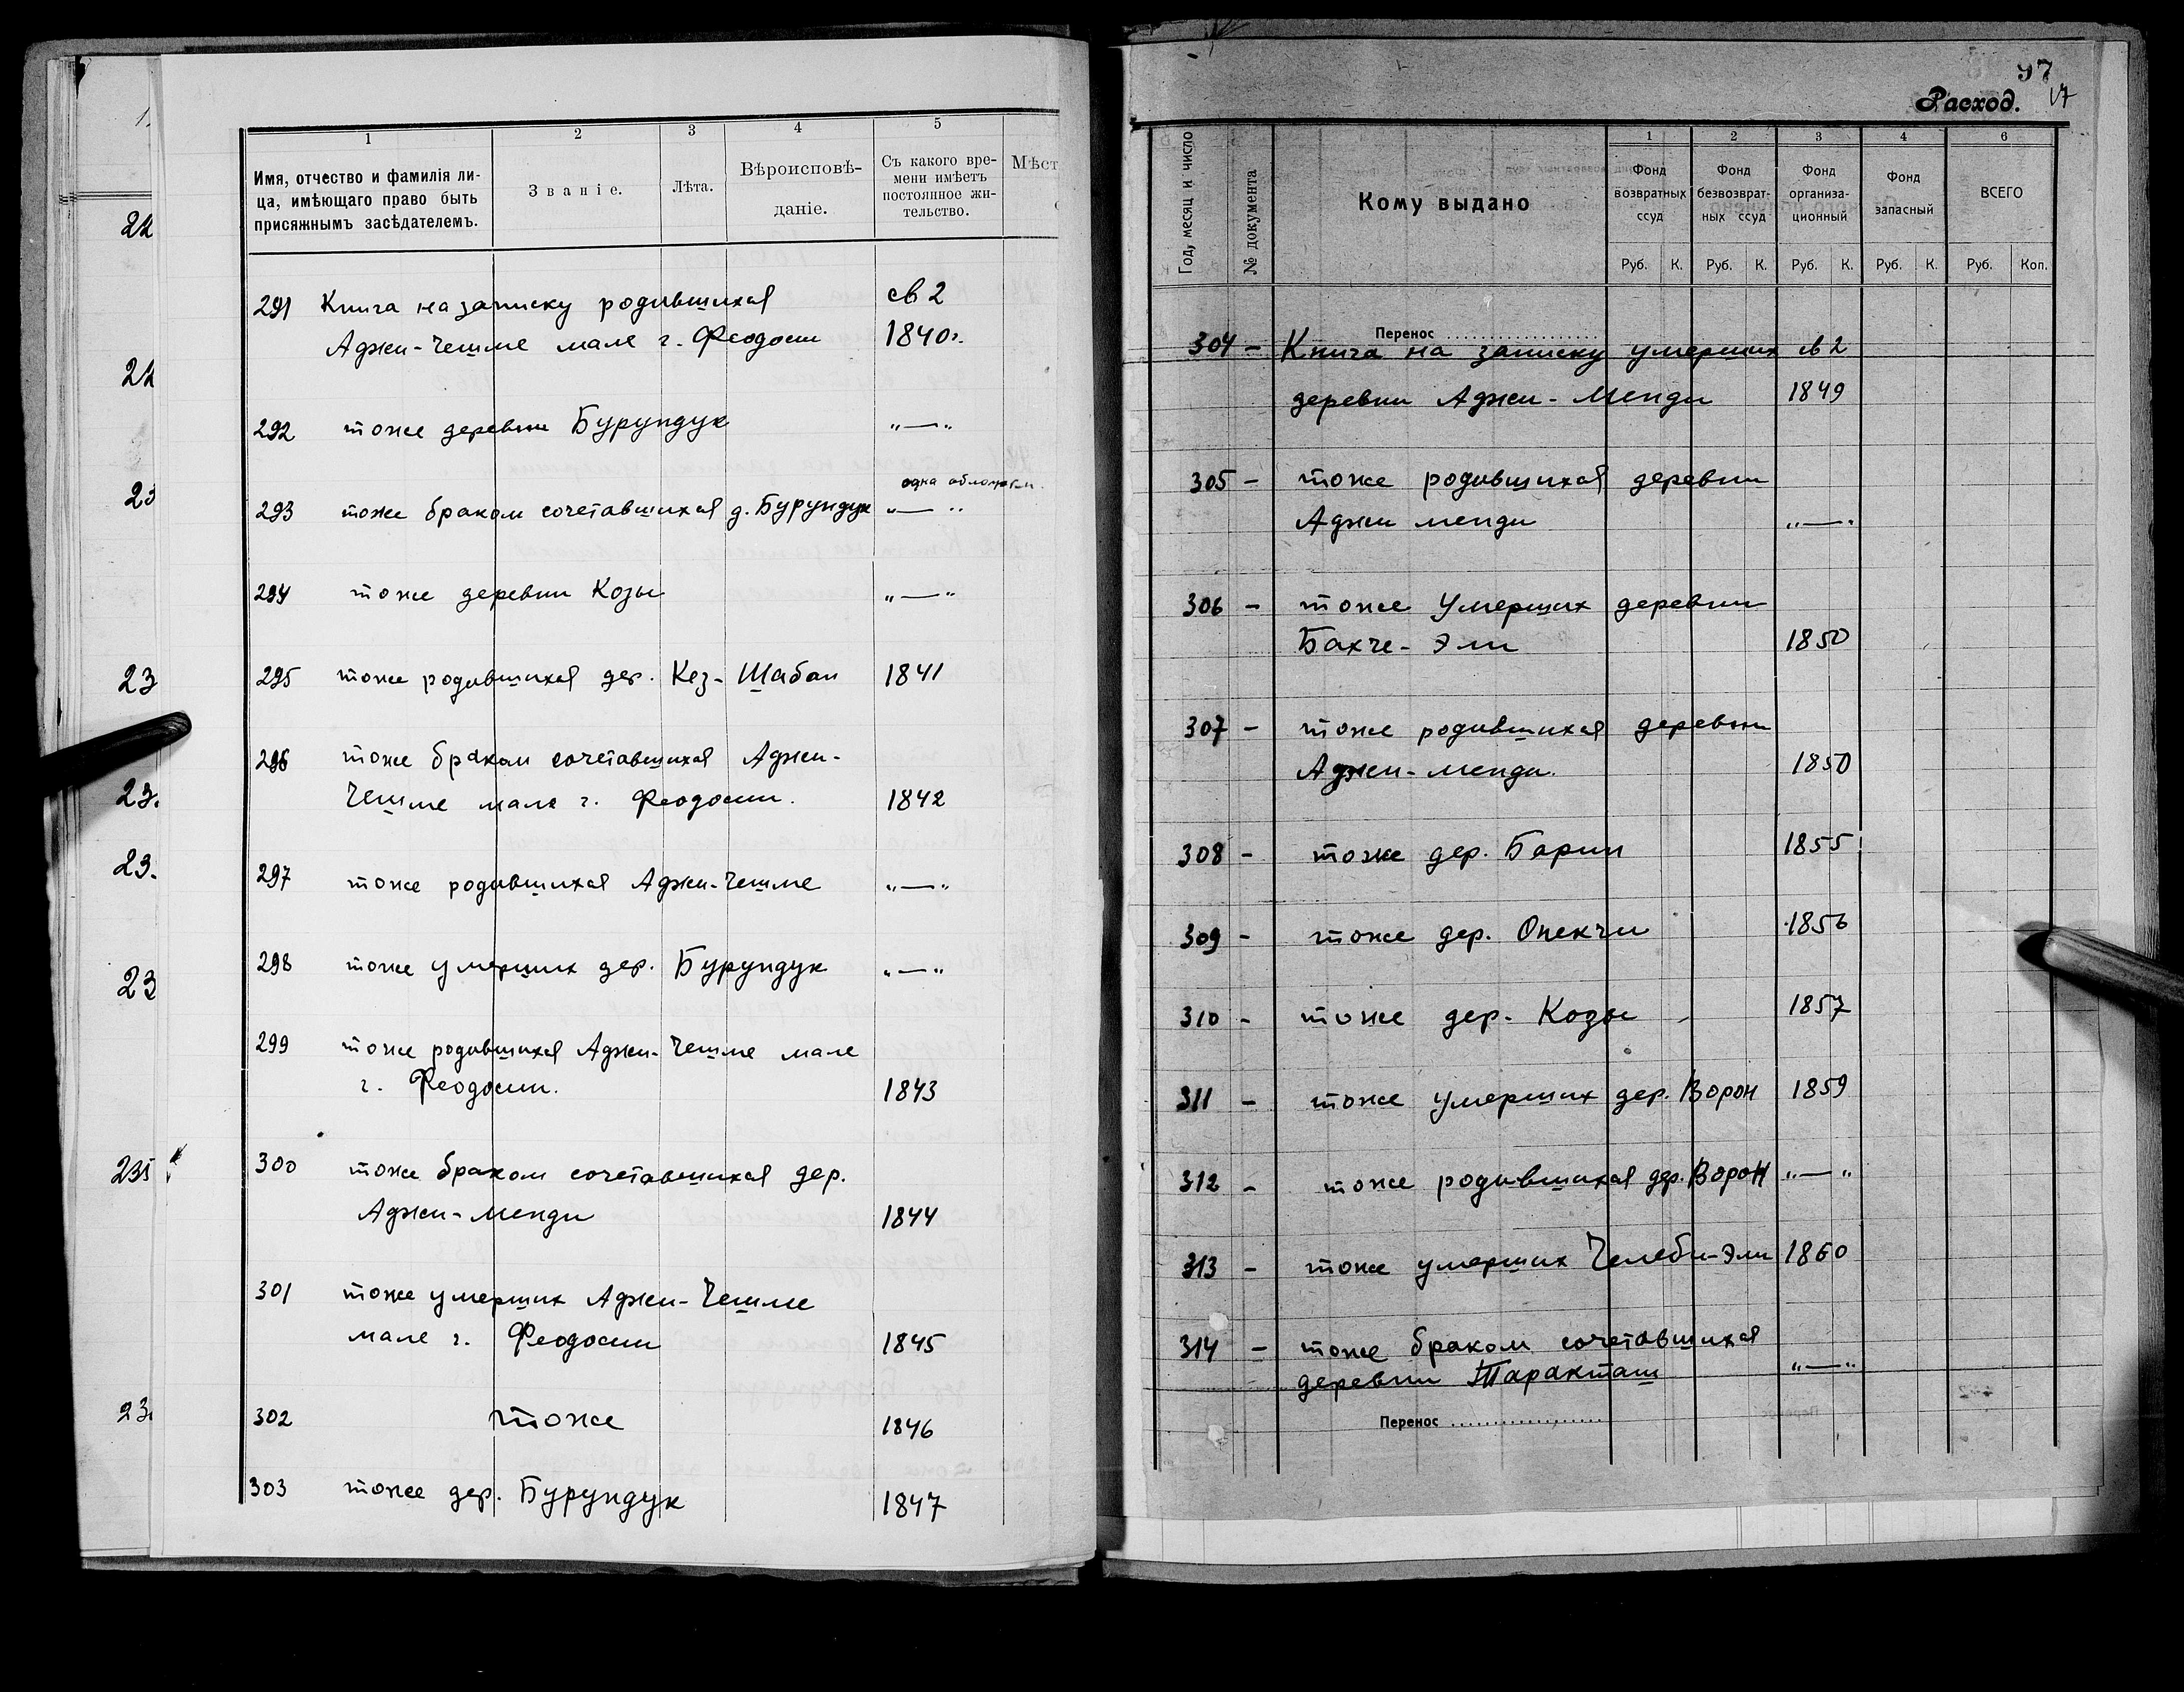 1
2
3
4
5
Имя, отчество и фамилія ли-
ца, имѣющаго право быть
присяжнымъ засѣдателемъ.
Званіе.
Лѣта.
Вѣроисповѣ-
даніе.
Съ какого вре-
мени имѣетъ
постоянное жи-
тельство.
Мѣст
291 Книга на записку родившихся св 2
Аджи-Чешме мале г. Феодоси 1840г.
292 тоже деревни Бурундук "—"
одна обложка.
293 тоже браком сочетавшихся д. Бурундук "—"
294 тоже деревни Козы "—"
295 тоже родившихся дер. Кез-Шабан 1841
296 тоже браком сочетавшихся Аджи-
Чешме мале г. Феодосии. 1842
297 тоже родившихся Аджи-Чешме "—"
298 тоже умерших дер. Бурундук "—"
299 тоже родившихся Аджи-Чешме мале
г. Феодосии. 1843
300 тоже браком сочетавшихся дер.
Аджи-Менди 1844
301 тоже умерших Аджи-Чешме
мале г. Феодосии 1845
302 тоже 1846
303 тоже дер. Бурундук 1847
22
22
23
23
23.
23.
23
235
23
97
Расход. 17
Год, месяц и число
№ документа
Кому выдано
1
2
3
4
6
Фонд
возвратных
ссуд
Фонд
безвозврат-
ных ссуд
Фонд
организа-
ционный
Фонд
запасный
ВСЕГО
Руб. К. Руб. К. Руб. К. Руб. К. Руб. Коп.
Перенос
304 - Книга на записку умерших св 2
деревни Аджи-Менди 1849
305 - тоже родившихся деревни
Аджи менди "—"
306 - тоже Умерших деревни
Бахче-Эли 1850
307 - тоже родившихся деревни
Аджи-менди. 1850
308 - тоже дер. Барин 1855
309 - тоже дер. Опекчи 1856
310 - тоже дер. Козы 1857
311 - тоже умерших дер. Ворон 1859
312 - тоже родившихся дер. Ворон "—"
313 - тоже умерших Челеби-Эли 1860
314 - тоже браком сочетавшихся
деревни Таракташ "—"
Перенос